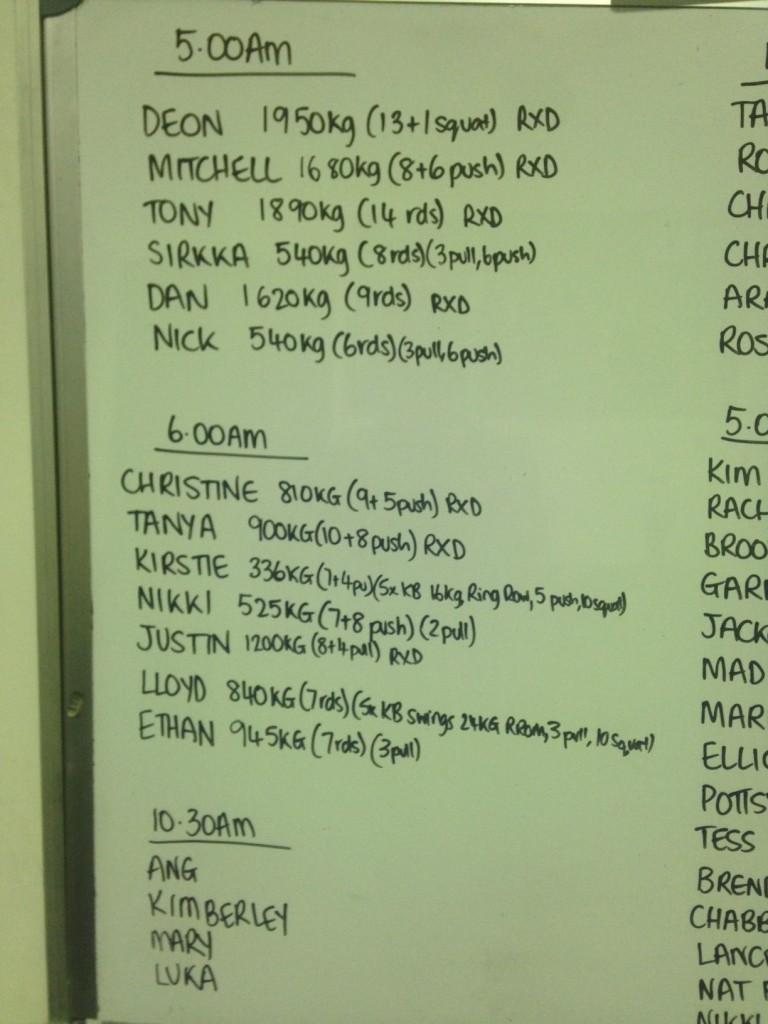 5.00AM
DEON 1950Kg (13+1squat) RXD
MITCHELL 1680kg (8+6push) RXD
TONY 1890kg (14 rds) RXD
SIRKKA 540kg (8rds)(3pull,6push)
DAN 1620kg (9rds) RXD
NICK 540kg (6rds)(3pull,6push)
6.00AM
CHRISTINE 810KG (9+5push) RXD
TANYA 900KG(10+8push) RXD
KIRSTIE 336KG(7+4pu)(5x KB 16kg, Ring Row, 5 push,10squat)
NIKKI 525KG (7+8 push) (2pull)
JUSTIN 1200KG (8+4pull) RXD
LLOYD 840KG(7rds)(5x KB swings 24KG RRow,3 pull, 10 Squat)
ETHAN 945KG (7rds) (3pull)
10.30AM
ANG
KIMBERLEY
MARY
LUKA
TA
RO
CH
CHA
ARA
ROS
5.0
KIM
RACH
BROO
GAR
JACK
MAD
MAR
ELLIO
POTTS
TESS
BREN
CHABB
LANC
NAT
NIKKI